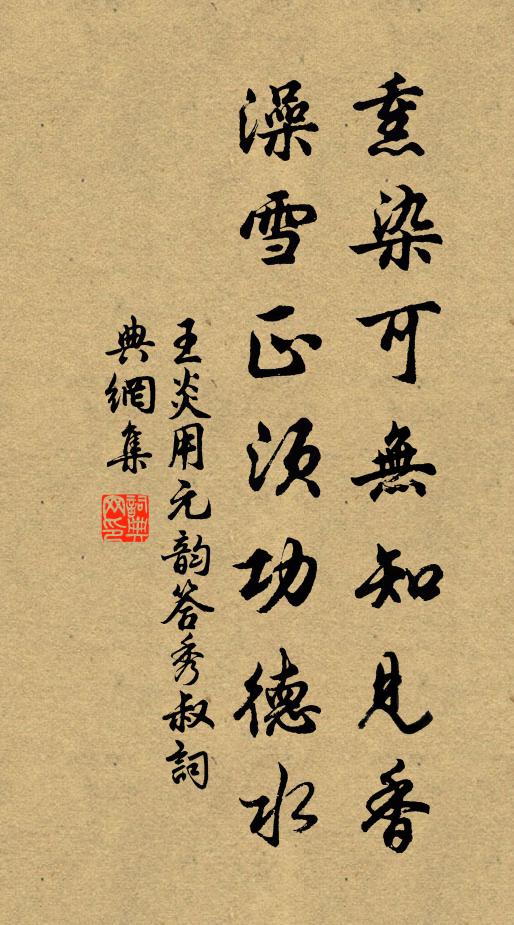 熏染可無知見香
澡雪正須功德水
王炎用元韵答秀叔詞
典網集
詞典網印